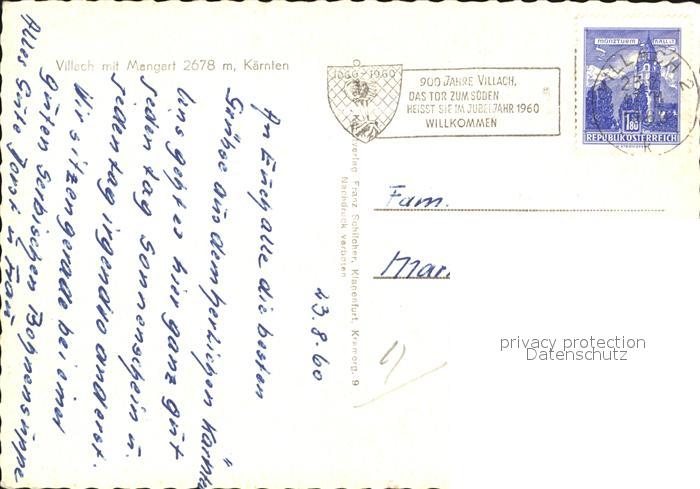 Villach mit Mangart 2678 m, Kärnten
1060 1960
900 JAHRE VILLACH,
DAS TOR ZUM SÜDEN
HEISST SIE IM JUBELJAHR 1960
WILLKOMMEN
MÜNZTURM HALL
1.80
REPUBLIK ÖSTERREICH
VILLACH 2
verlag Franz Schilcher, Klagenfurt, Kramerg. 9
Nachdruck verboten
23.8.60
An Euch alle die besten
Grüße aus dem herlichen Kärnten
Uns geht es hier ganz gut
jeden tag Sonnenschein u.
jeden tag irgendwo anderst.
Wir sitzen gerade bei einer
guten Serbischen Bohnensuppe
Alles Gute
Fam.
Mar.
privacy protection
Datenschutz